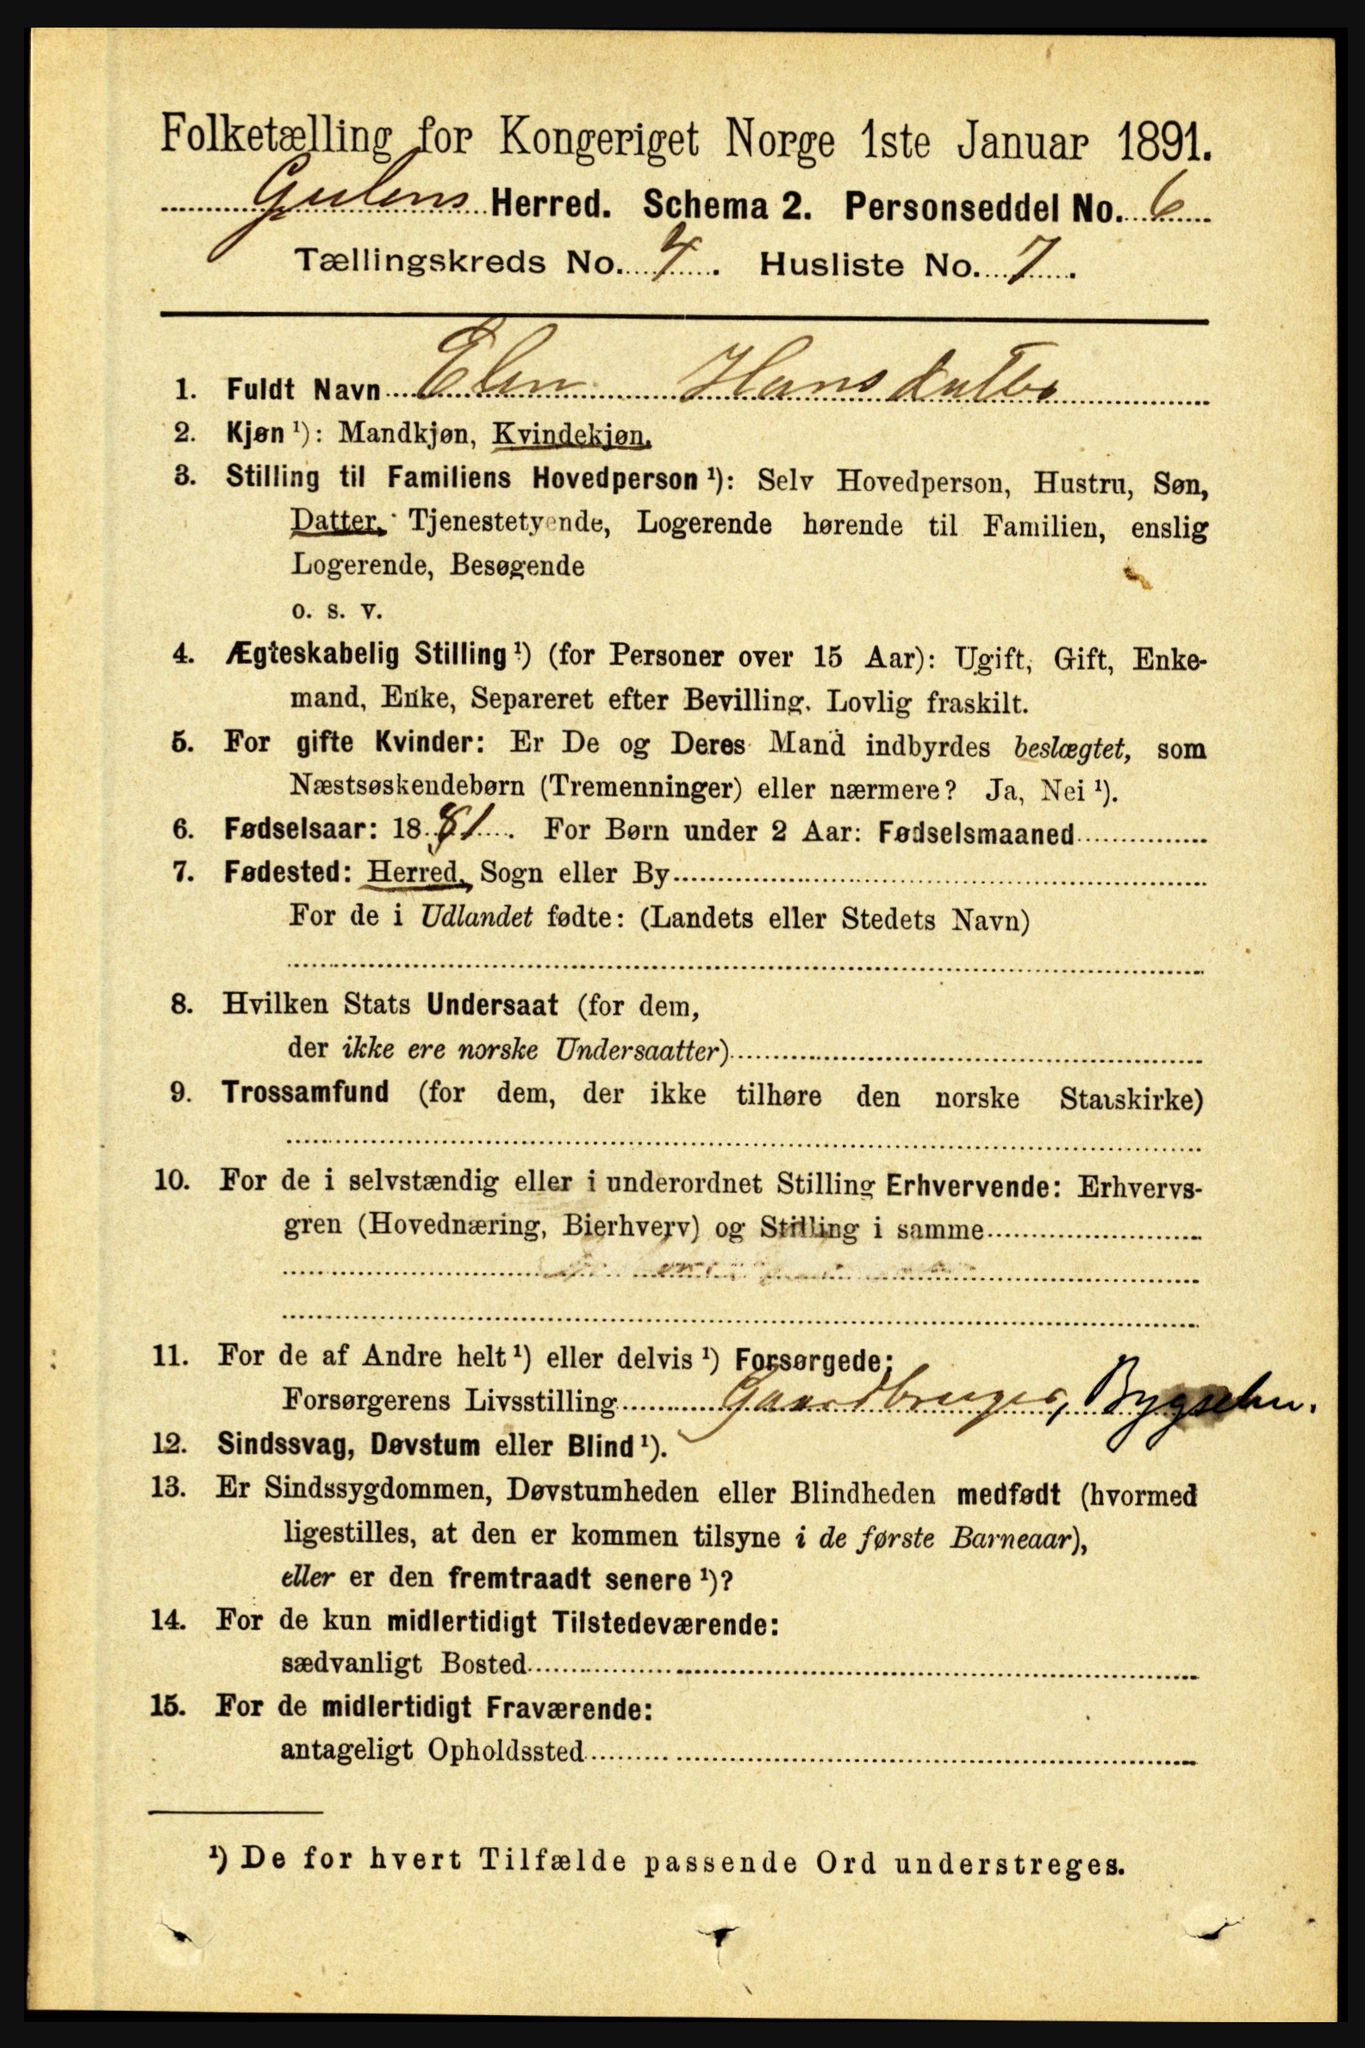 Folketælling for Kongeriget Norge 1ste Januar 1891.
Gulens Herred. Schema 2. Personseddel No. 6
Tællingskreds No. 4. Husliste No. 7.
1. Fuldt Navn Elen Hansdatter
2. Kjøn ¹): Mandkjøn, Kvindekjøn.
3. Stilling til Familiens Hovedperson ¹): Selv Hovedperson, Hustru, Søn,
Datter, Tjenestetyende, Logerende hørende til Familien, enslig
Logerende, Besøgende
o. s. v.
4. Ægteskabelig Stilling ¹) (for Personer over 15 Aar): Ugift, Gift, Enke-
mand, Enke, Separeret efter Bevilling. Lovlig fraskilt.
5. For gifte Kvinder: Er De og Deres Mand indbyrdes beslægtet, som
Næstsøskendebørn (Tremenninger) eller nærmere? Ja, Nei ¹).
6. Fødselsaar: 1881. For Børn under 2 Aar: Fødselsmaaned
7. Fødested: Herred, Sogn eller By
For de i Udlandet fødte: (Landets eller Stedets Navn)
8. Hvilken Stats Undersaat (for dem,
der ikke ere norske Undersaatter)
9. Trossamfund (for dem, der ikke tilhøre den norske Statskirke)
10. For de i selvstændig eller i underordnet Stilling Erhvervende: Erhvervs-
gren (Hovednæring, Bierhverv) og Stilling i samme
11. For de af Andre helt ¹) eller delvis ¹) Forsørgede:
Forsørgerens Livsstilling Gaardbruger, Bygselm.
12. Sindssvag, Døvstum eller Blind ¹).
13. Er Sindssygdommen, Døvstumheden eller Blindheden medfødt (hvormed
ligestilles, at den er kommen tilsyne i de første Barneaar),
eller er den fremtraadt senere ¹)?
14. For de kun midlertidigt Tilstedeværende:
sædvanligt Bosted
15. For de midlertidigt Fraværende:
antageligt Opholdssted
¹) De for hvert Tilfælde passende Ord understreges.